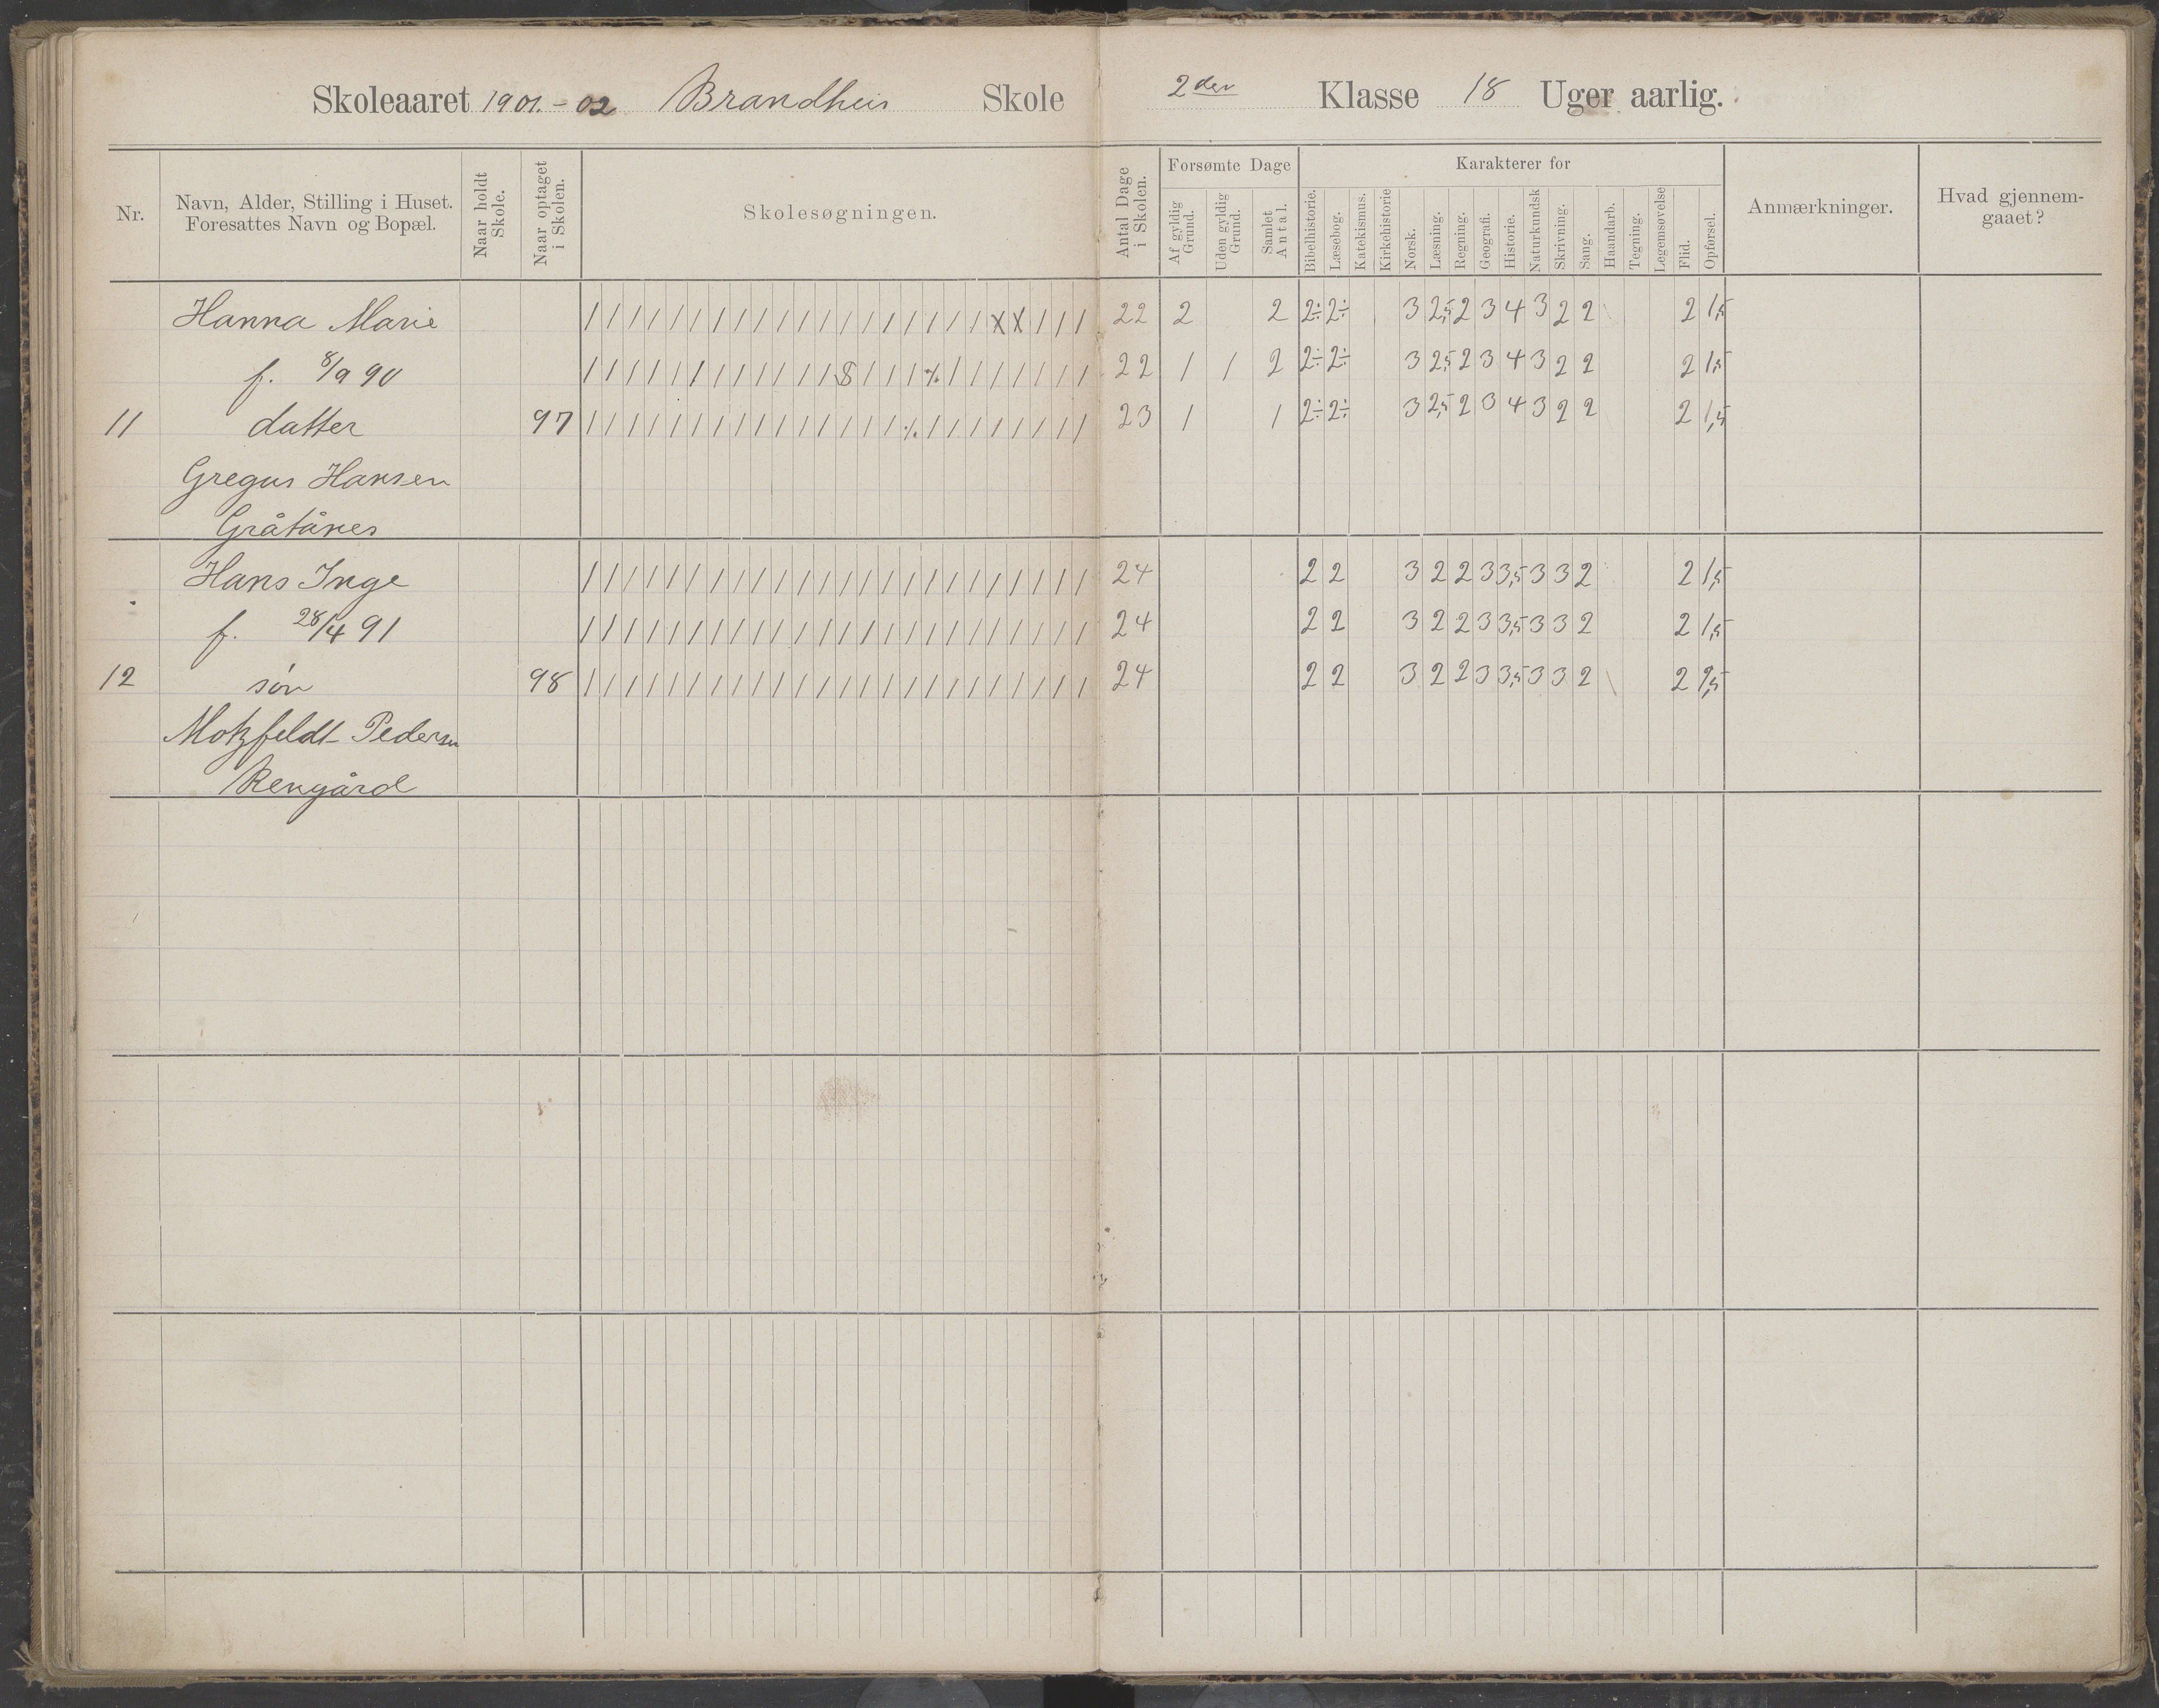 Skoleaaret 1901.-02 Brandheis Skole 2den Klasse 18 Uger aarlig.
Nr.
Navn, Alder, Stilling i Huset. Foresattes Navn og Bopæl.
Naar holdt Skole.
Naar optaget i Skolen.
Skolesøgningen.
Antal Dage i Skolen.
Forsømte Dage
Af gyldig Grund.
Uden gyldig Grund.
Samlet Antal.
Karakterer for
Bibelhistorie.
Læsebog.
Katekismus.
Kirkehistorie
Norsk.
Læsning.
Regning.
Geografi.
Historie.
Naturkundsk
Skrivning.
Sang.
Haandarb.
Tegning.
Legemsøvelse
Flid.
Opførsel.
Anmærkninger.
Hvad gjennemgaaet?
Hanna Marie / / / / / / / / / / / / / / / / / / / x x / / / 22 2 2 2÷ 2÷ 3 2,5 2 3 4 3 2 2 2 1,5
f. 8/9 90 / / / / / / / / / / / / S / / / ٪ / / / / / / / 22 1 1 2 2÷ 2÷ 3 2,5 2 3 4 3 2 2 2 1,5
11 datter 97 / / / / / / / / / / / / / / / ٪ / / / / / / / / 23 1 1 2÷ 2÷ 3 2,5 2 3 4 3 2 2 2 1,5
Gregus Hansen
Gråtånes
Hans Inge / / / / / / / / / / / / / / / / / / / / / / / / 24 2 2 3 2 2 3 3,5 3 3 2 2 1,5
f. 28/4 91 / / / / / / / / / / / / / / / / / / / / / / / / 24 2 2 3 2 2 3 3,5 3 3 2 2 1,5
12 søn 98 / / / / / / / / / / / / / / / / / / / / / / / / 24 2 2 3 2 2 3 3,5 3 3 2 2 1,5
Motzfeldt Pedersen
Rengård